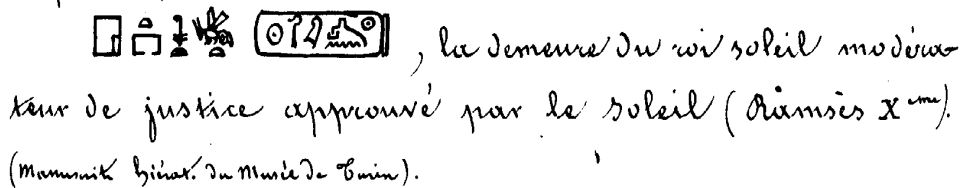 , la demeure du roi soleil modéra-
teur de justice approuvé par le soleil (Ramsès X ème).
(Manuscrits hiérat. du Musée de Turin).